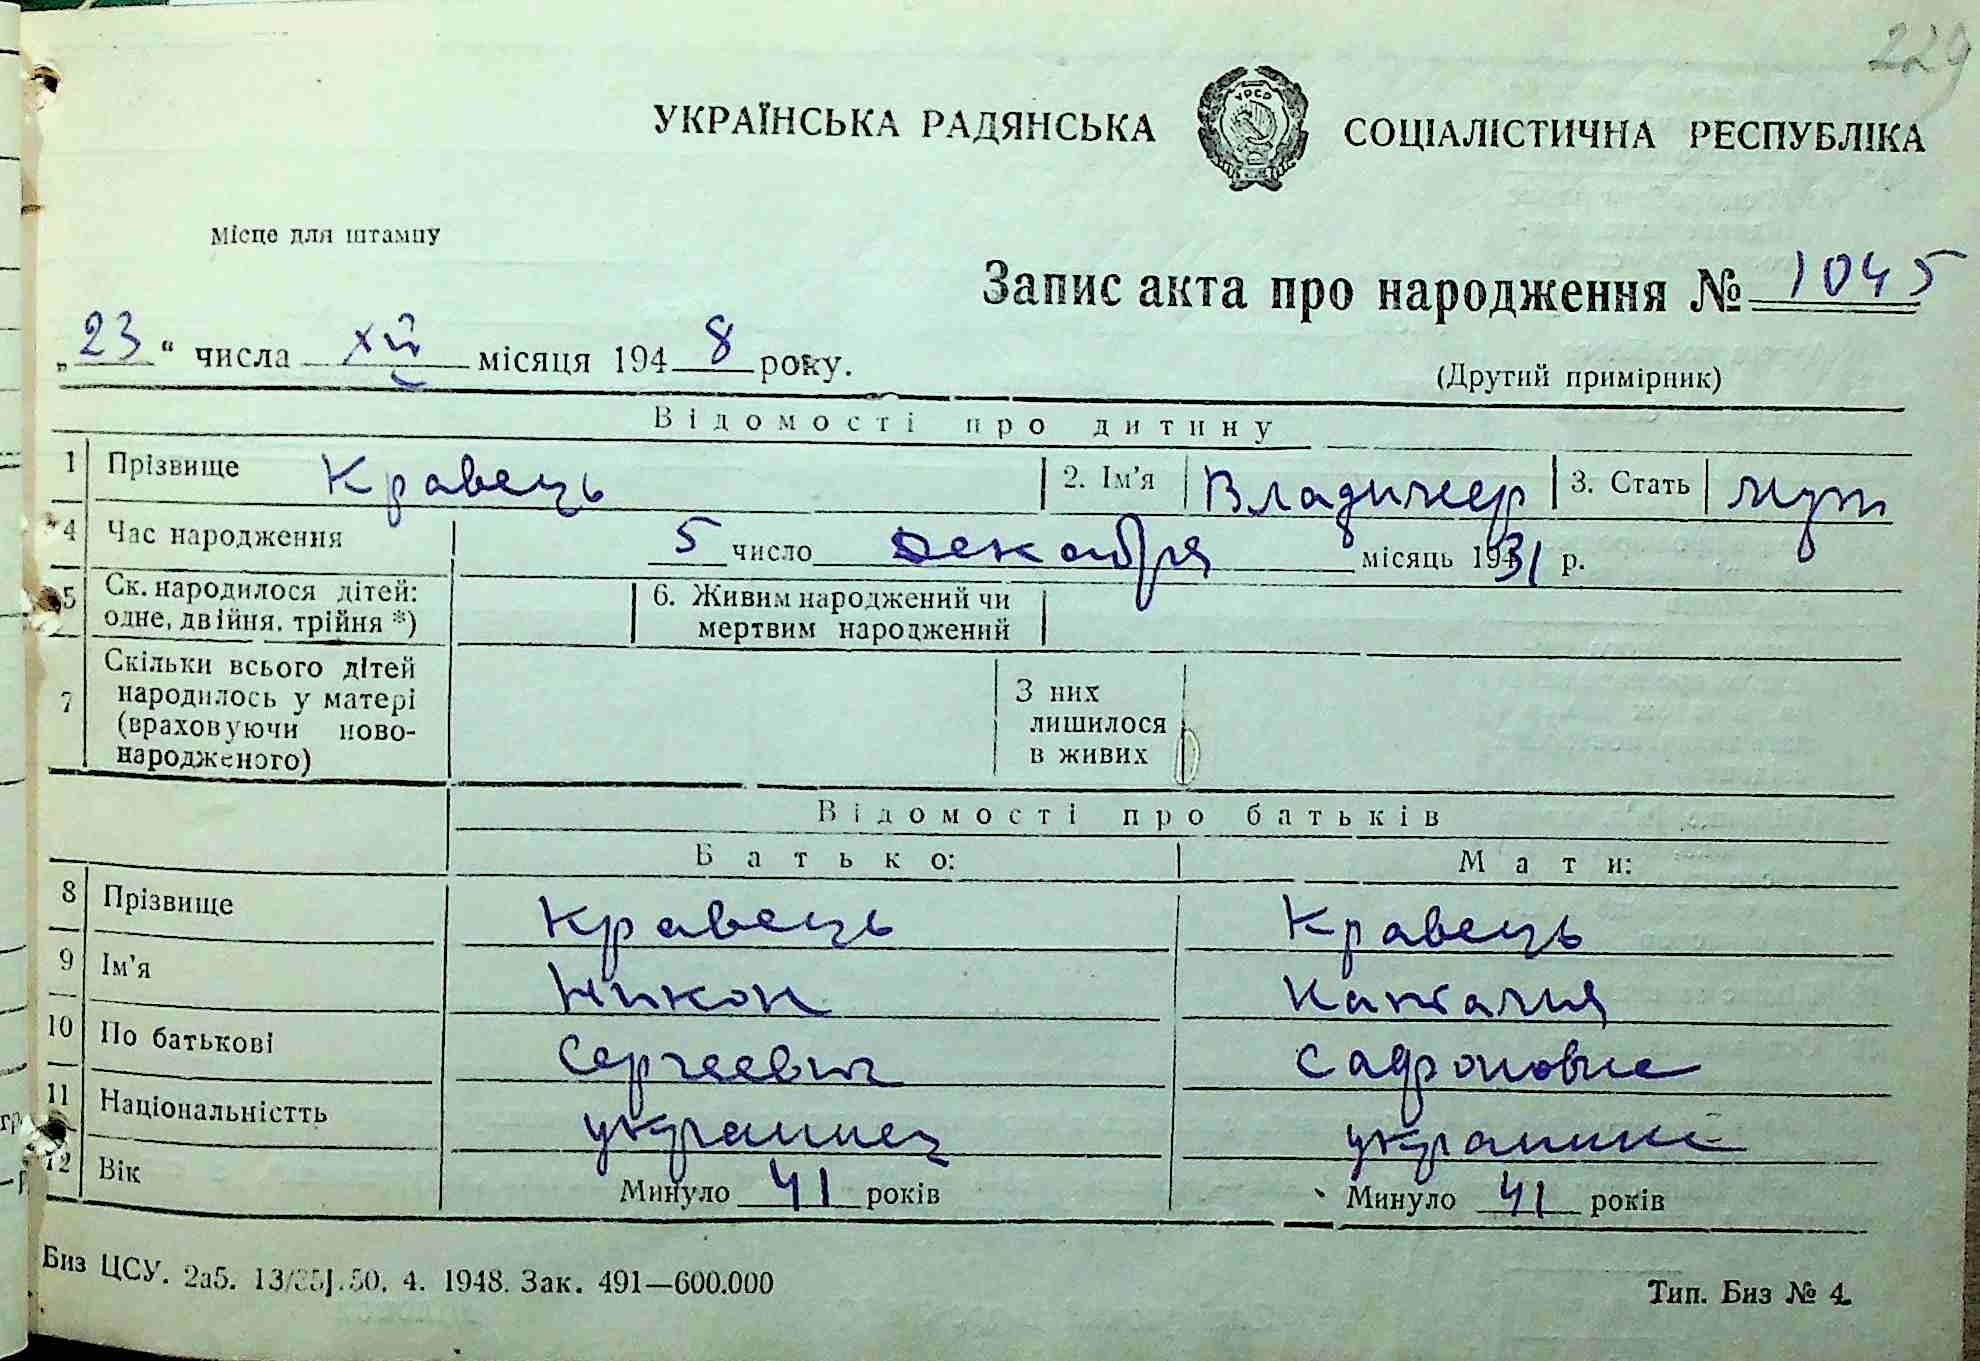 229
УКРАЇНСЬКА РАДЯНСЬКА СОЦІАЛІСТИЧНА РЕСПУБЛІКА
УРСР
Місце для штампу
Запис акта про народження № 1045
„23“ числа XII місяця 1948 року.
(Другий примірник)
Відомості про дитину
1 Прізвище Кравець 2. Ім'я Владимер 3. Стать муж
4 Час народження 5 число декабря місяць 1931 р.
5 Ск. народилося дітей: одне, двійня, трійня *) 6. Живим народжений чи мертвим народжений
7 Скільки всього дітей народилось у матері (враховуючи новонародженого) З них лишилося в живих
Відомості про батьків
Батько: Мати:
8 Прізвище Кравець Кравець
9 Ім'я Никон
10 По батькові Сергеевич Сафроновна
11 Національністть украинец украинка
12 Вік Минуло 41 років Минуло 41 років
Биз ЦСУ. 2а5. 50. 4. 1948. Зак. 491—600.000 Тип. Биз № 4.